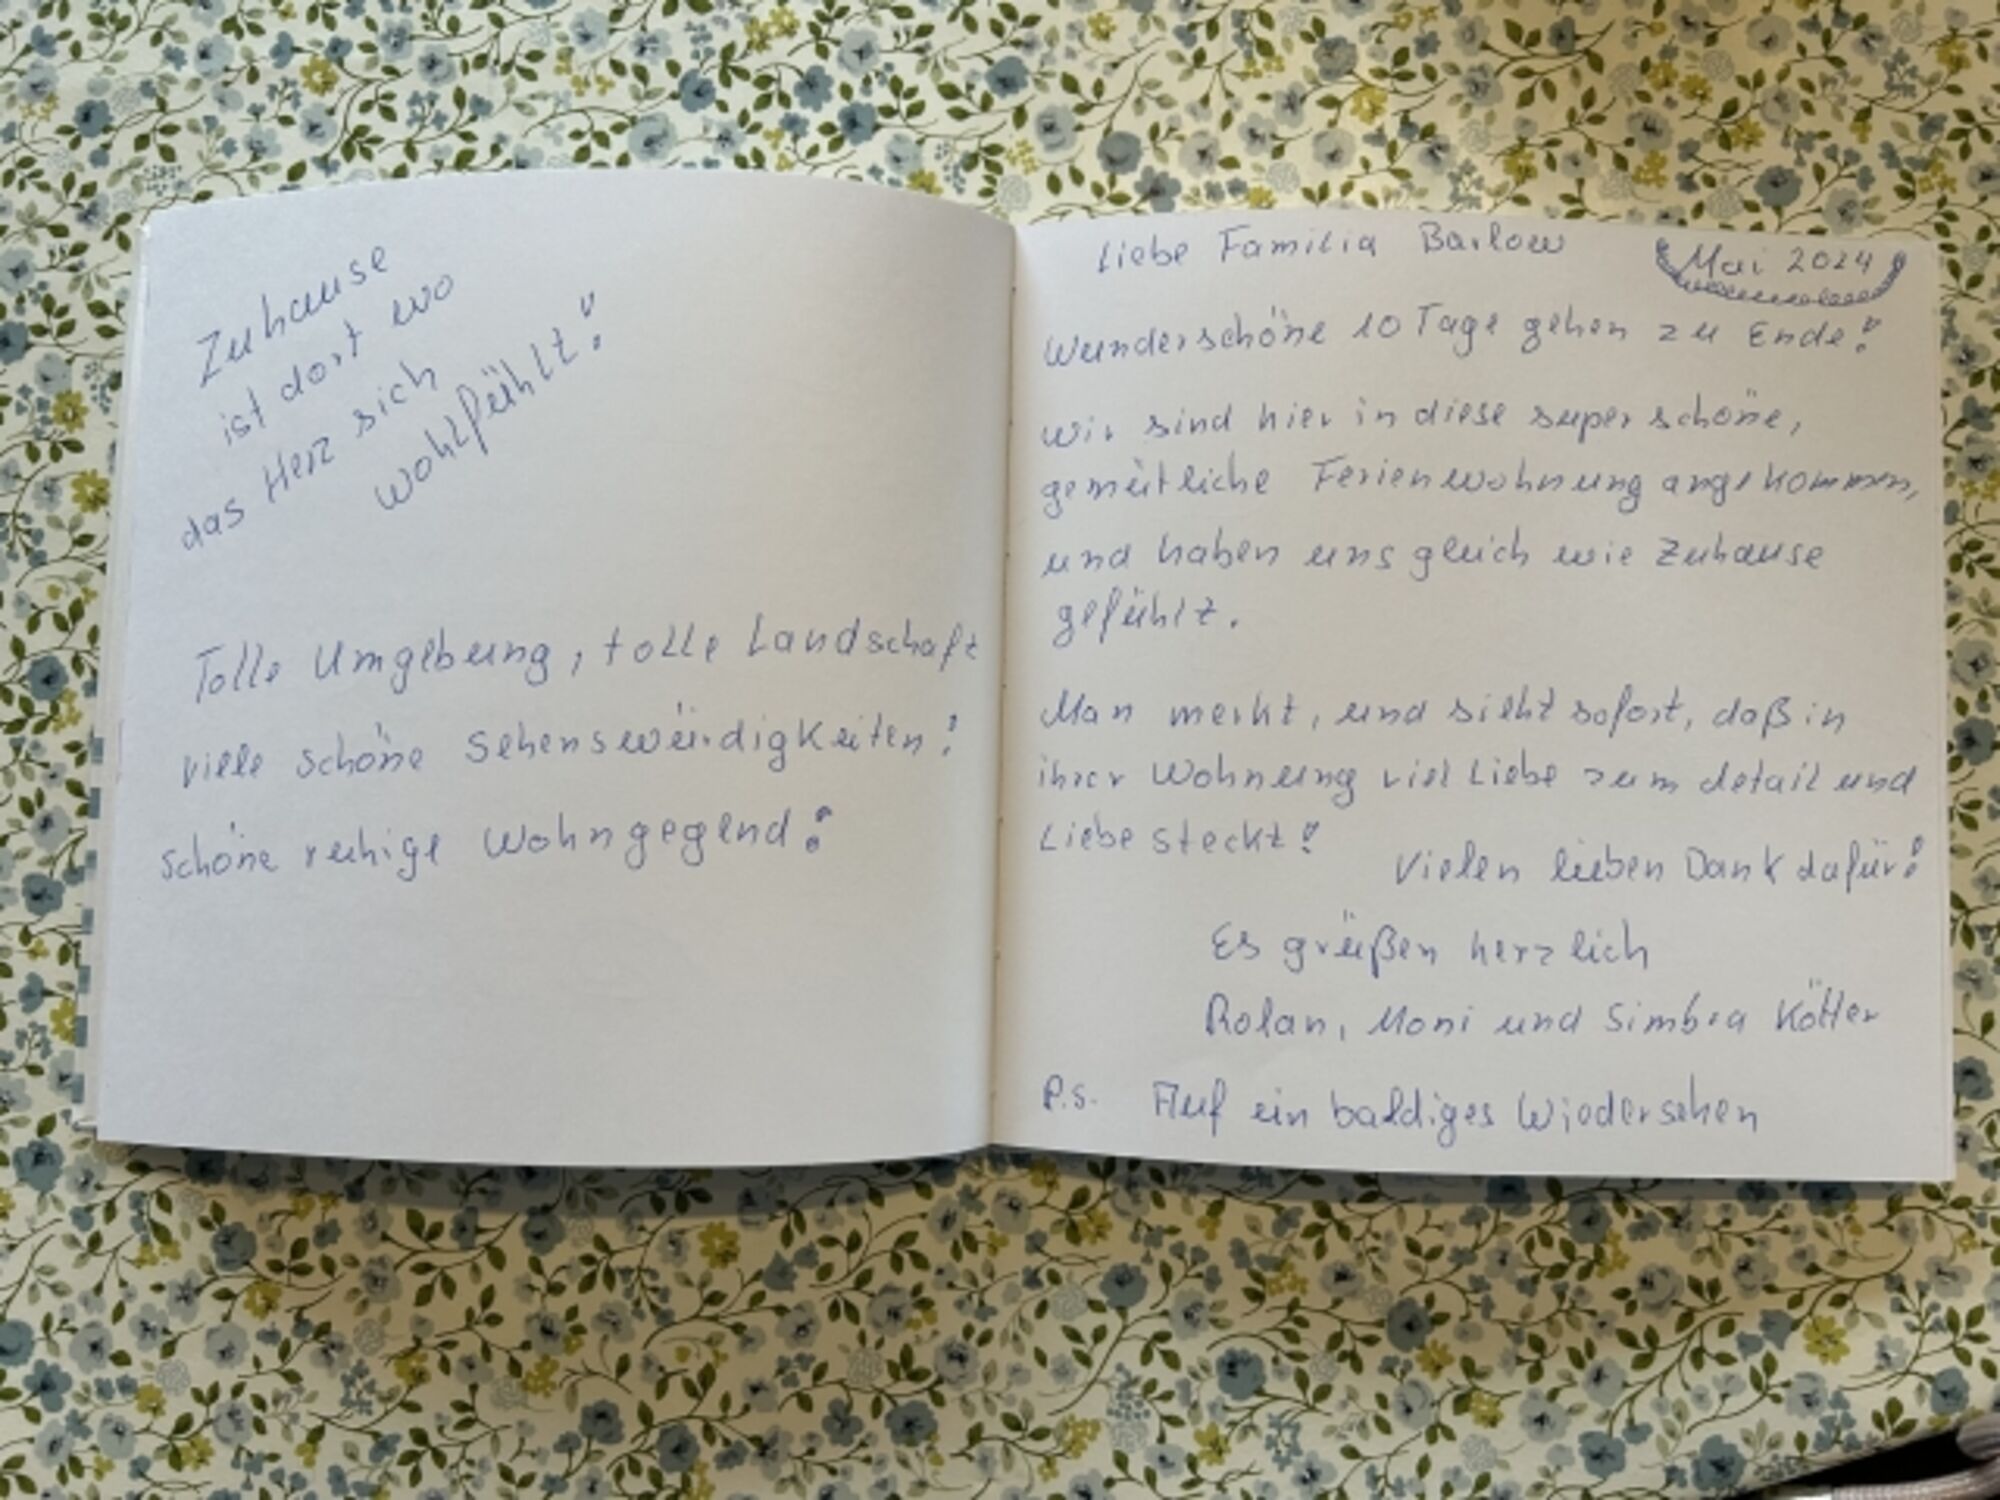 Zuhause
ist dort wo
das Herz sich
wohlfühlt!
Tolle Umgebung, tolle Landschaft
viele schöne Sehenswürdigkeiten!
schöne ruhige Wohngegend!
Liebe Familia Barlow
Mai 2024
Wunderschöne 10 Tage gehen zu Ende!
Wir sind hier in diese super schöne,
gemütliche Ferienwohnung angekommen,
und haben uns gleich wie Zuhause
gefühlt.
Man merkt, und sieht sofort, daß in
ihrer Wohnung viel Liebe zum detail und
Liebe steckt!
Vielen lieben Dank dafür!
Es grüßen herzlich
Rolan, Moni und Simbra Kötter
P.S. Auf ein baldiges Wiedersehen